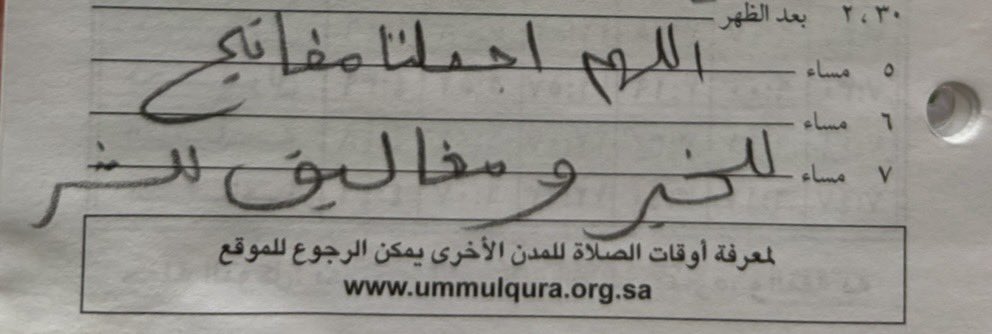 ٢،٣٠ بعد الظهر
اللهم اجعلنا مفاتيح
٥ مساء
٦ مساء
للخير و مغاليق للشر
٧ مساء
لمعرفة أوقات الصلاة للمدن الأخرى يمكن الرجوع للموقع
www.ummulqura.org.sa